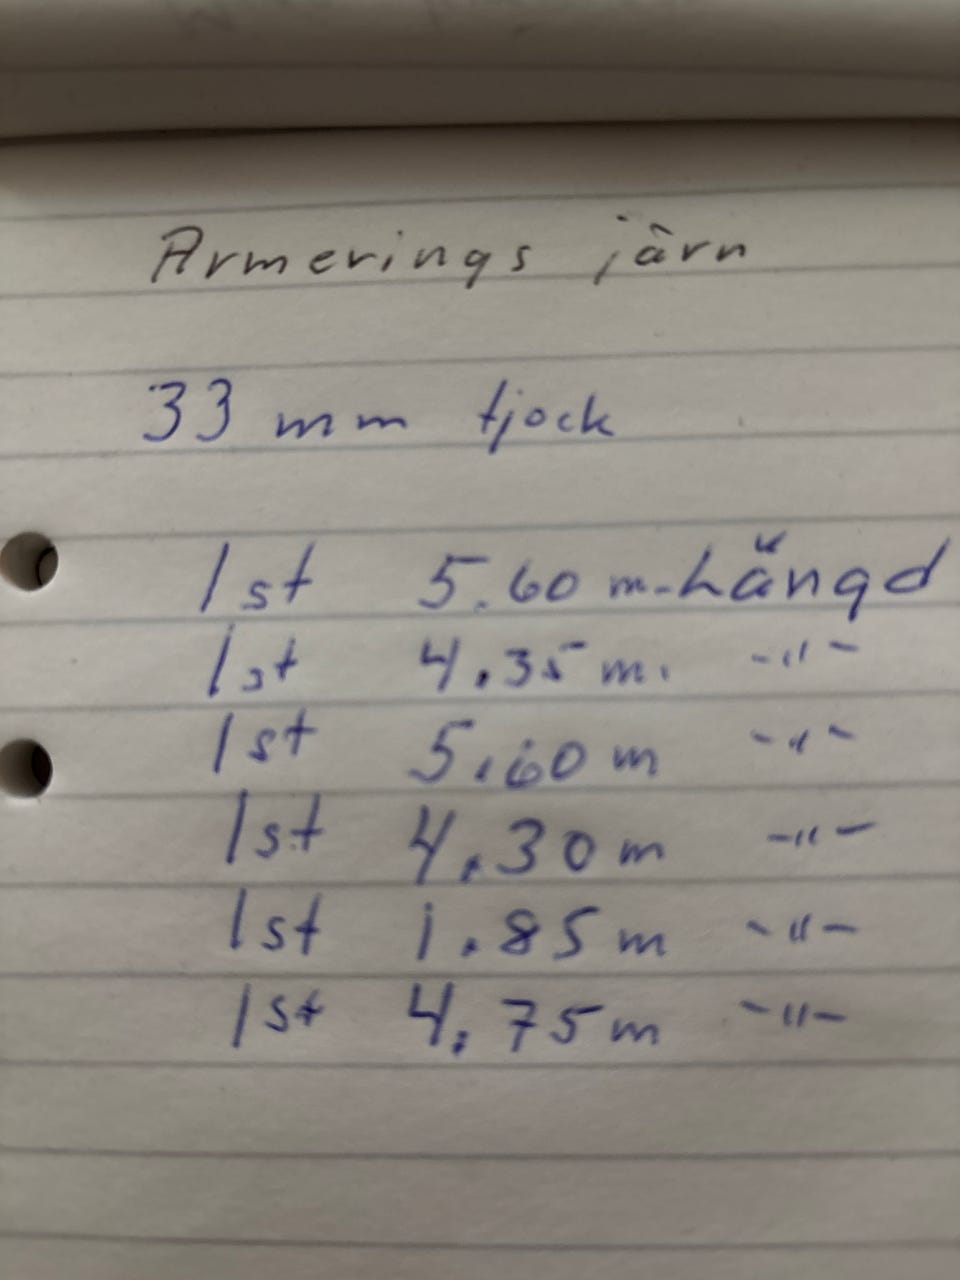 Armerings järn
33 mm tjock
1 st 5.60 m-Längd
1 st 4.35 m. -"-
1 st 5.60 m -"-
1 st 4.30 m -"-
1 st 1.85 m -"-
1 st 4.75 m -"-